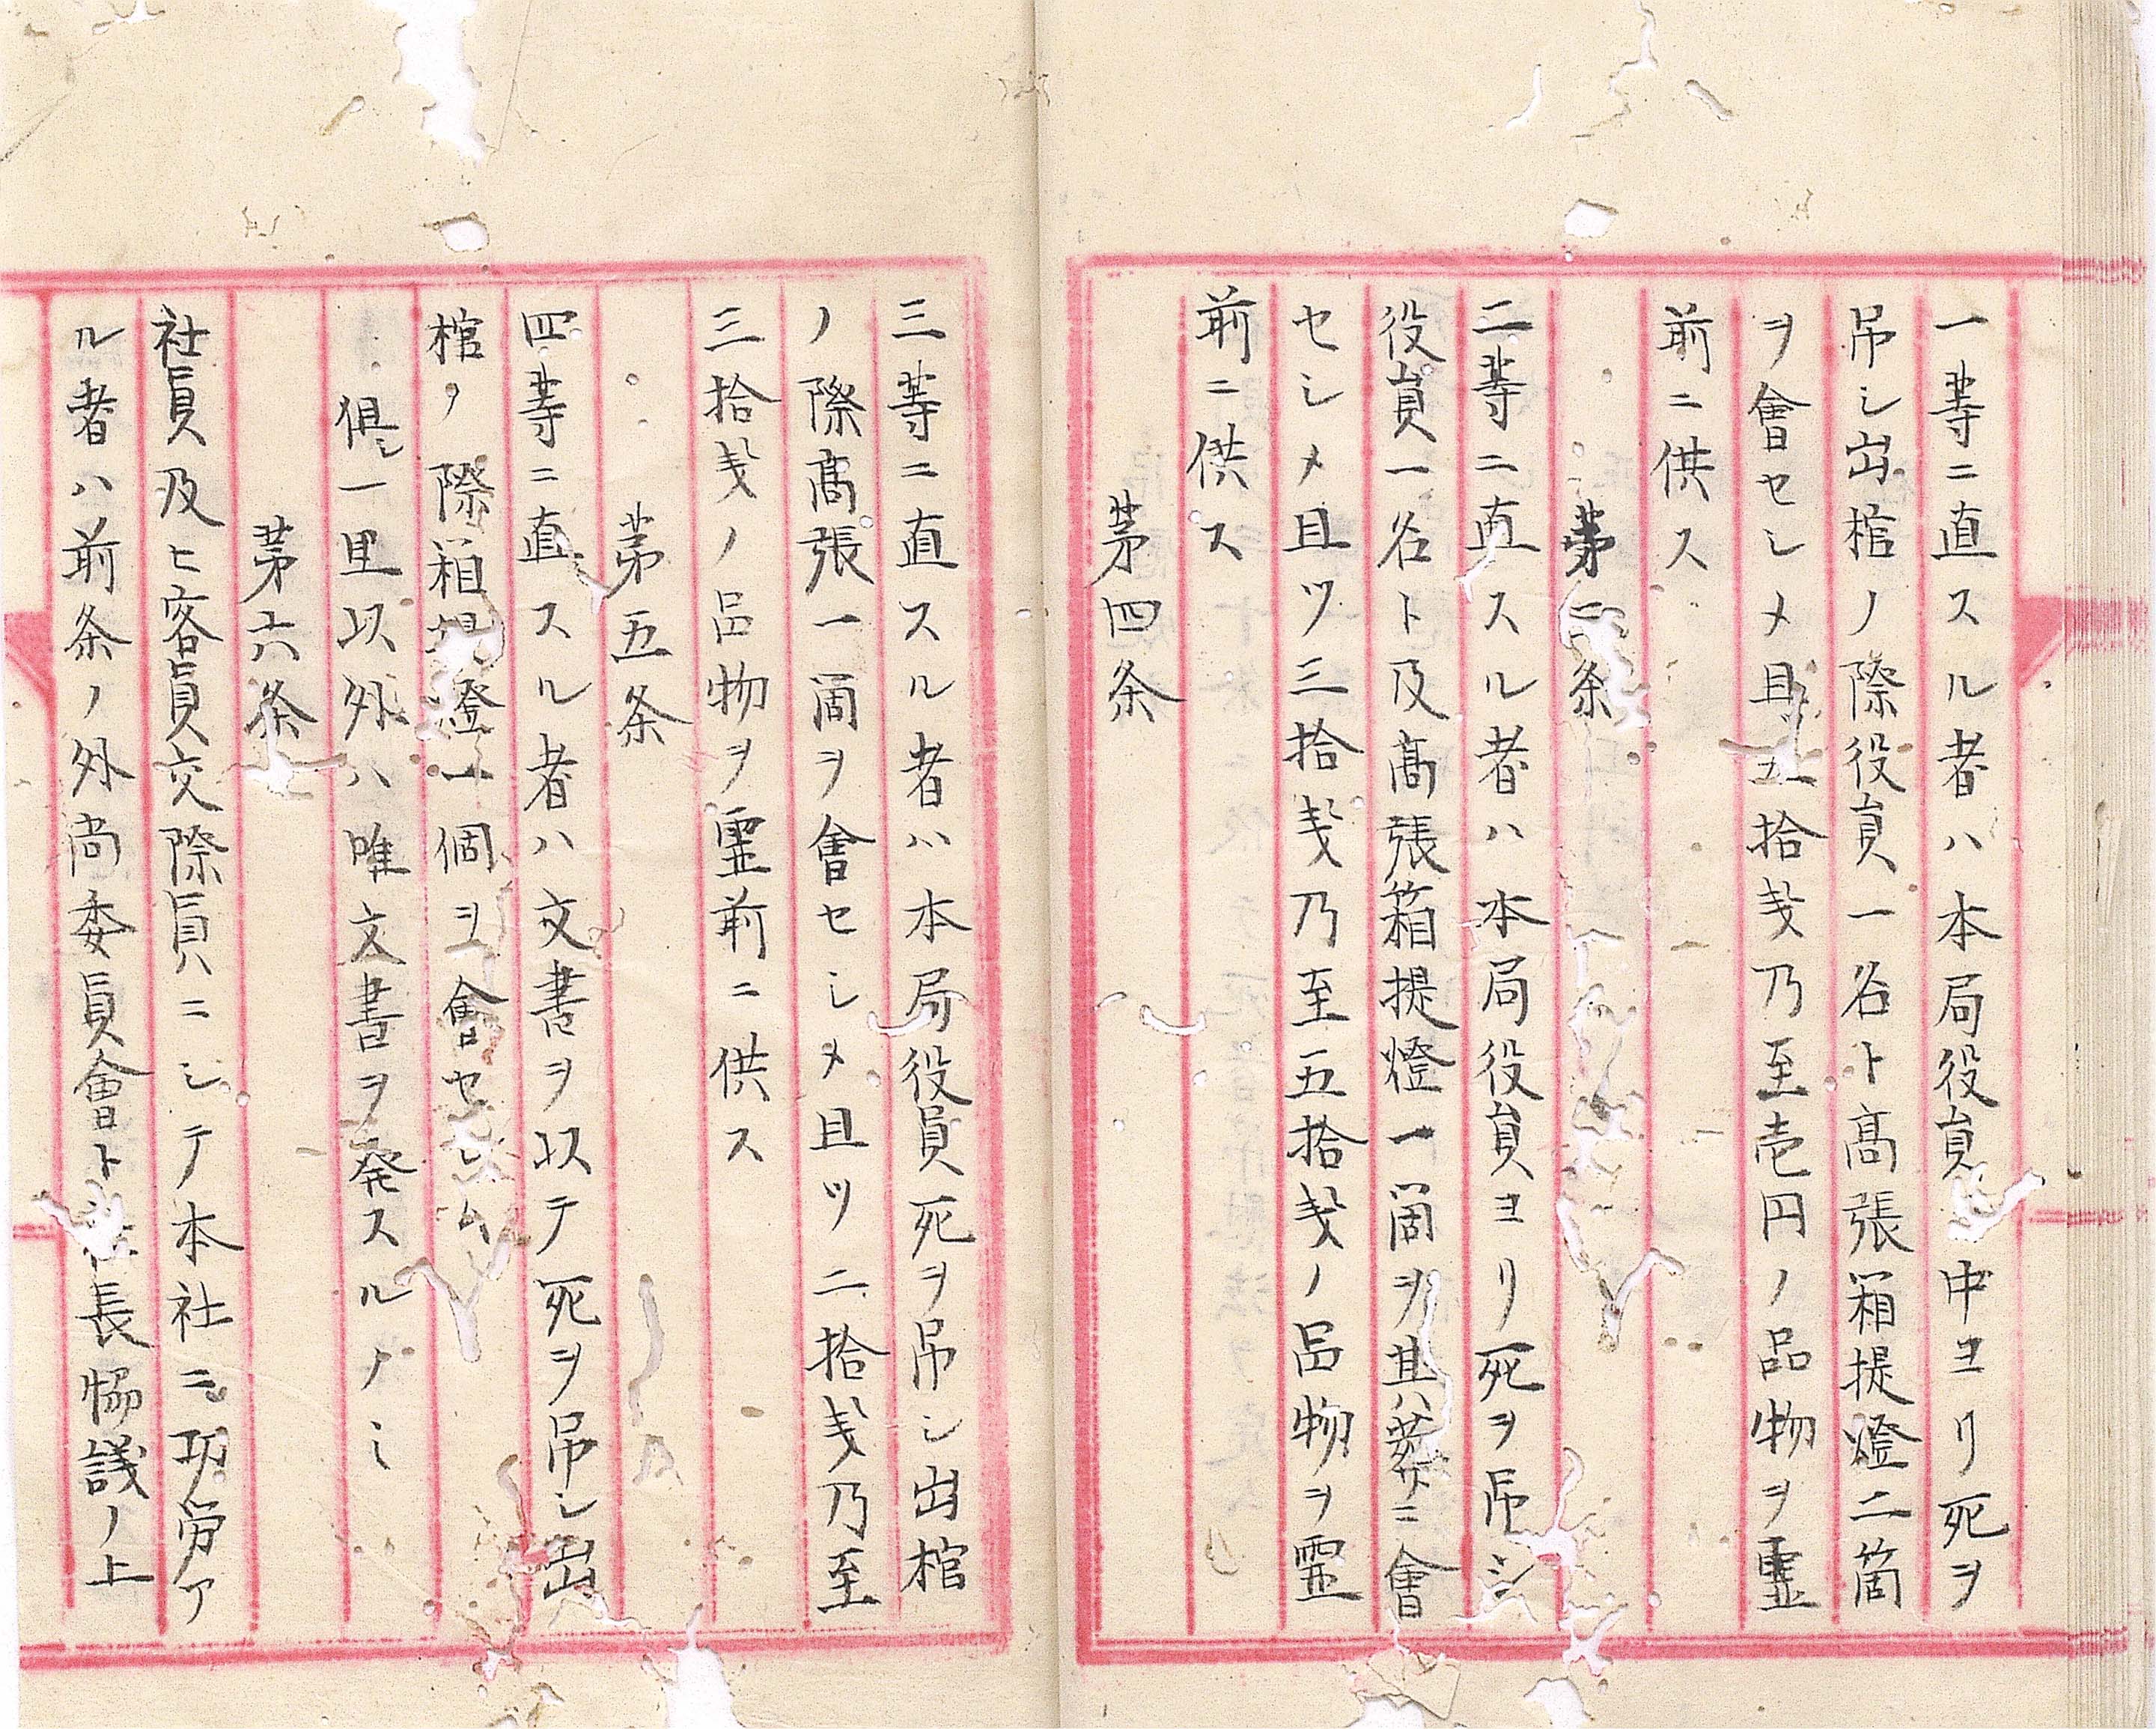 一等ニ直スル者ハ本局役員中ヨリ死ヲ
吊シ出棺ノ際役員一名ト髙張箱提燈二箇
ヲ會セシメ且五拾戔乃至壱円ノ品物ヲ霊
前ニ供ス
第条
二等ニ直スル者ハ本局役員ヨリ死ヲ吊シ
役員一名ト及髙張箱提燈一箇ヲ其ハ葬ニ會
セシメ且ツ三拾戔乃至五拾戔ノ品物ヲ霊
前ニ供ス
第四条
三等ニ直スル者ハ本局役員死ヲ吊シ出棺
ノ際髙張一箇ヲ會セシメ且ツ二拾戔乃至
三拾戔ノ品物ヲ霊前ニ供ス
第五条
四等ニ直スル者ハ文書ヲ以テ死ヲ吊シ出
棺ノ際箱燈一個ヲ會セシム
俱シ一里以外ハ唯文書ヲ発スルノミ
第六条
社員及ヒ客員交際員ニシテ本社ニ功労ア
ル者ハ前条ノ外尚委員會ト長協議ノ上